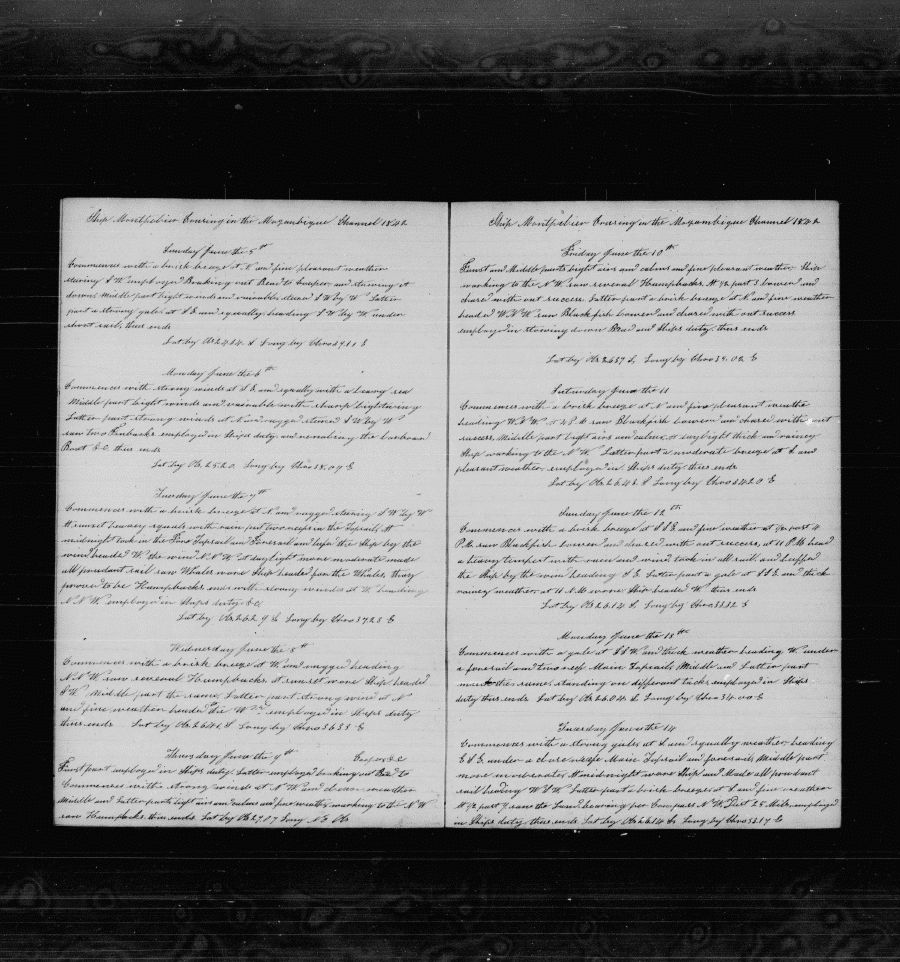 Ship Montpelier Crusing in the Mozambique Channel 1842
Sunday June the 5th
Commences with a brisk breeze at and fine pleasant weather
stearing S W employed Breaking out Bead to Cooper and stowing it
down Middle part light winds and vairable steard S W by W Latter
part a strong gale at S E and squally heading S W by W under
short sail, thus ends
Lat by Ob 24.54 S Long by Chro 39.11 E
Monday June the 6th
Commences with strong winds at S E and squally with a heavy sea
Middle part light winds and vairable with sharp lightning
Latter part strong winds at and rugged steard S W by W
saw two Finbacks employed in Ships duty and the larboard
Boat &.C. thus ends
Lat by Ob 25.20 Long by Chro 38.09 E
Tuesday June the 7th
Commences with a brisk breeze at and rugged stearing S W by W
At sunset heavey squals with rain put two reefs in the Topsails At
midnight took in the Fore Topsail and Foresail and luft the Ship by the
wind headed W the wind N.N W at daylight more moderate made
all prudant sail saw Whales wore Ship headed for the Whales, thay
proved to be Humpbacks, ends with strong winds at heading
N N W employed in Ships duty &.C.
Lat by Ob 26.29 S Long by Chro 37.23 E
Wednesday June the 8th
Commences with a brisk breeze at W and rugged heading
N.N W saw several Humpbacks at sunset wore Ship headed
S W Middle part the same, Latter part strong wind at N
and fine weather headed W employed in Ships duty
thus ends Lat by Ob 26.41 S Long by Chro 36.35 E
Thursday June the 9th
First part employed in Ships duty. Latter employed breaking out Bead to Cooper &.C
Commences with strong winds at N W and clear weather
Middle and Latter parts light airs and calms and fine weather, working to the N W
saw Humpbacks thus ends Lat by Ob 27.07 Long No Ob
Ship Montpelier Crusing in the Mozambique Channel 1842
Friday June the 10th
First and Middle parts light airs and calms and fine pleasant weather Ship
working to the N W saw several Humpbacks At 1/2 part lowered and
chased with out success. Latter part a brisk breeze at and fine weather
headed W N W saw Blackfish lowered and chased with out success
employed in stowing down Bead and Ships duty thus ends
Lat by Ob 26.57 S Long by Chro 34.02 E
Saturday June 11
Commences with a brisk breeze at and fine pleasant weather
heading W N W at 4 P.M saw Blackfish lowered and chased with out
success, Middle part light airs and calms, at daylight thick and rainey
Ship working to the N W Latter part a moderate breeze at S and
pleasant weather employed in Ships duty thus ends
Lat by Ob 26.43 S Long by Chro 34.20 E
Sunday June 12th
Commences with a brisk breeze at S S E and fine weather at 1/2 past 4
P.M. saw Blackfish lowered and chased with out success, at 11 P.M. head
a heavey tempest with rain and wind took in all sail and luffed
the Ship by the wind heading S E Latter part a gale at S S E and thick
rainey weather at 11 A.M wore Ship headed W thus ends
Lat by Ob 26.14 S Long by Chro 33.32 E
Monday June the 13th
Commences with a gale at S S W and thick weather heading W under
a foresail and two reef Main Topsail, Middle and Latter part
much the same, standing on different tacks, employed in Ships
duty thus ends Lat by Ob 26.04 S Long by Chro 34.00 E
Tuesday June the 14
Commences with a strong gale at S and squally weather heading
E S E under a close reefe Main Topsail and foresail, Middle part
more moderate, At midnight wore Ship and Made all prudant
sail heading W S W Latter part a brisk breeze at S and fine weather
At 1/2 past 7 saw the Land bearing per Compass N W, Dist 25 Miles employed
in Ships duty, thus ends Lat by Ob 26.14 S Long by Chro 33.17 E